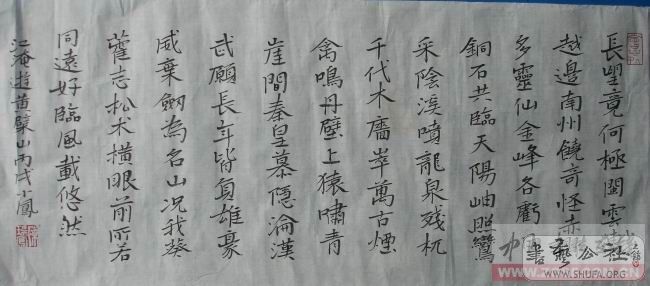 長望竟何極閩雲
越邊南州饒奇怪赤
多靈仙金峰各虧
銅石共臨天陽岫照鸞
采陰溪噴龍泉殘杌
千代木廧崒萬古煙
禽鳴丹壁上猿嘯青
崖間秦皇慕隱淪漢
武願長年皆負雄豪
威棄劍為名山況我葵
藿志松木橫眼前所若
同遠好臨風載悠然
江淹遊黃檗山丙戌小鳳
書藝公社
WWW.SHUFA.ORG